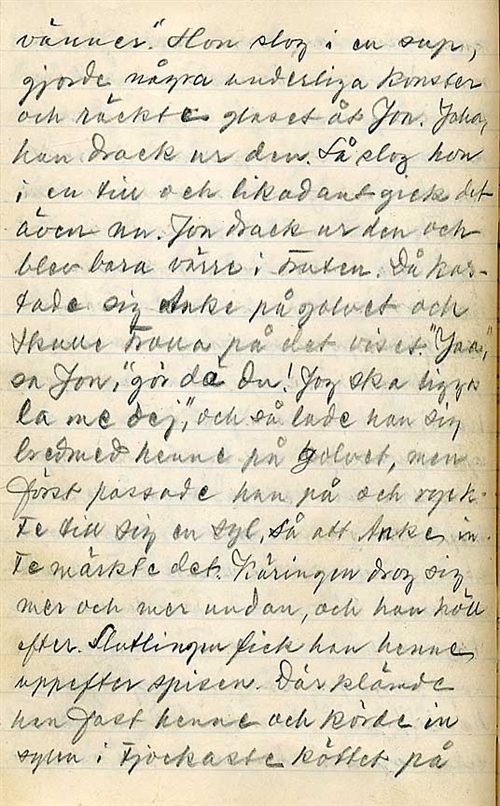 vänner". Hon slog i en sup,
gjorde några underliga konster
och räckte glaset åt Jon. Joha,
han drack ur den. Så slog hon
i en till och likadant gick det
även nu. Jon drack ur den och
blev bara värre i truten. Då kas-
tade sig Anke på golvet och
skulle trolla på det viset. "Jaa,"
sa Jon, "gör dä du! Jog ska ligga
la me dej", och så lade han sig
bredmed henne på golvet, men
först passade han på och ryck-
te till sig en syl, så att Anke in-
te märkte det. Käringen drog sig
mer och mer undan, och han höll
efter. Slutlingen fick han henne
uppefter spisen. Där klämde
han fast henne och körde in
sylen i tjockaste köttet på